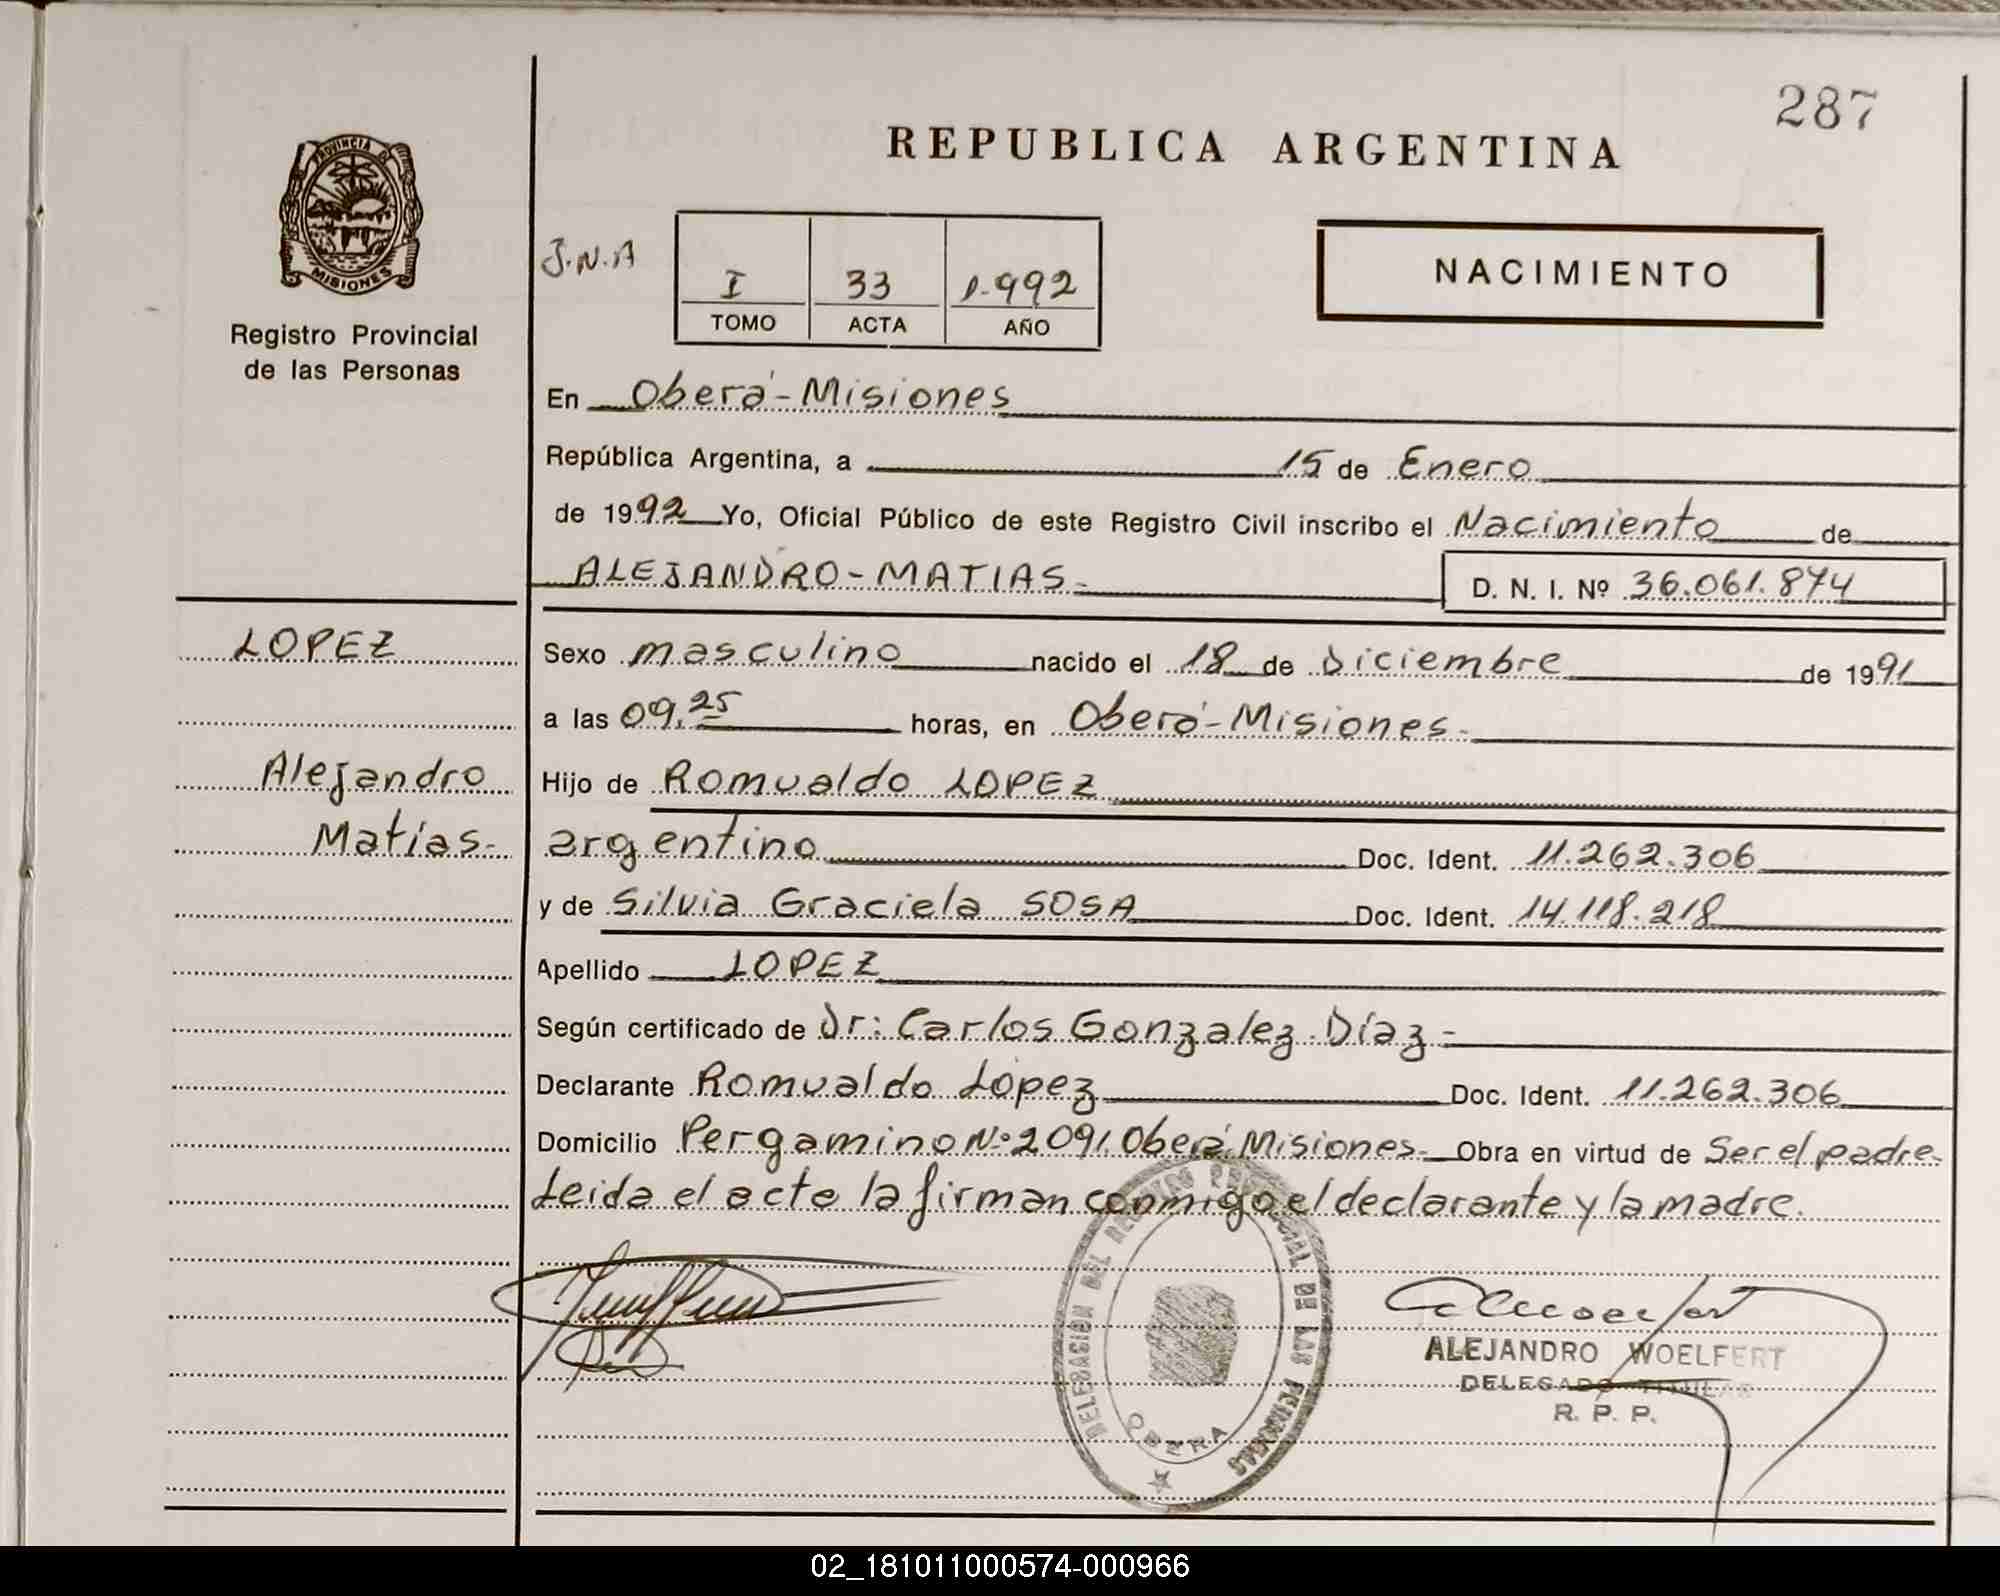 287
REPUBLICA ARGENTINA
PROVINCIA DE
MISIONES
Registro Provincial
de las Personas
J.N.A
I 33 1.992
TOMO ACTA AÑO
NACIMIENTO
En Oberá-Misiones
República Argentina, a 15 de Enero
de 1992 Yo, Oficial Público de este Registro Civil inscribo el Nacimiento de
ALEJANDRO-MATIAS-
D. N. I. Nº 36.061.874
LOPEZ
Alejandro
Matías-
Sexo masculino nacido el 18 de Diciembre de 1991
a las 09.25 horas, en Oberá-Misiones-
Hijo de Romualdo LOPEZ
argentino Doc. Ident. 11.262.306
y de Silvia Graciela SOSA Doc. Ident. 14.118.218
Apellido LOPEZ
Según certificado de Dr: Carlos Gonzalez Díaz-
Declarante Romualdo Lopez Doc. Ident. 11.262.306
Domicilio Pergamino Nº 2091. Oberá Misiones- Obra en virtud de Ser el padre-
Leida el acta la firman conmigo el declarante y la madre.
DELEGACION DEL REGISTRO PROVINCIAL DE LAS PERSONAS
OBERA
ALEJANDRO WOELFERT
DELEGADO TITULAR
R. P. P.
02_181011000574-000966